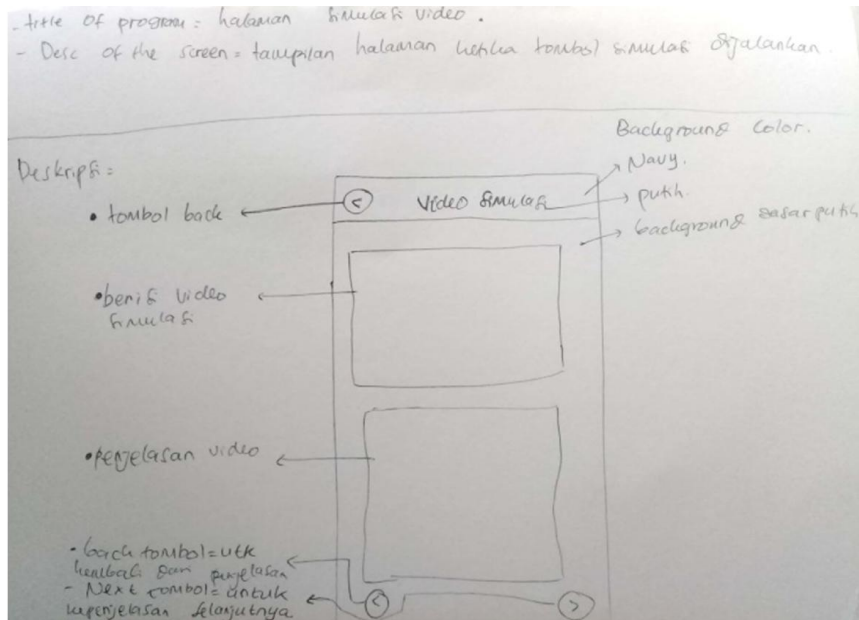 - title of program = halaman simulasi video.
- Desc of the screen = tampilan halaman ketika tombol simulasi dijalankan.
Background Color.
Deskripsi =
Navy.
< Video Simulasi
putih.
• tombol back
background dasar putih
• berisi video
simulasi
• penjelasan video
- back tombol = utk
kembali dari penjelasan
- Next tombol = untuk
kepenjelasan selanjutnya
< >